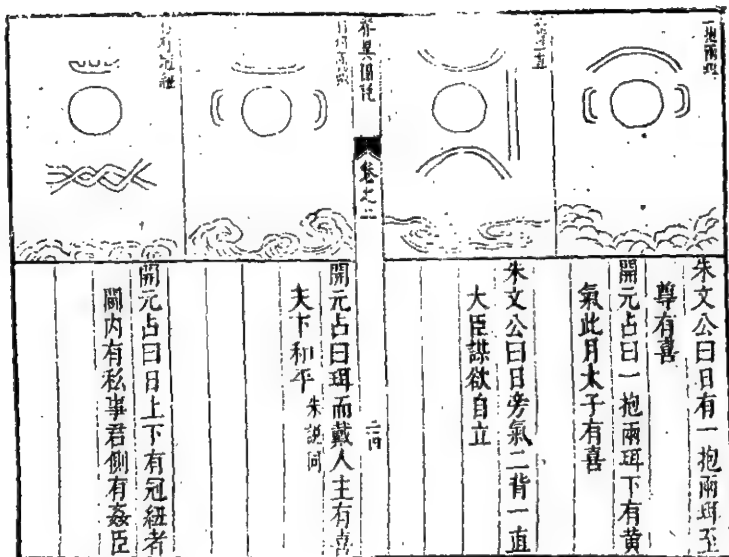 一抱兩珥
朱文公曰日有一抱兩珥至
尊有喜
開元占曰一抱兩珥下有黄
氣此月太子有喜
二背一直
朱文公曰日旁氣二背一直
大臣謀欲自立
卷之二
開元占曰珥而戴人主有喜
天下和平 朱說同
開元占曰日上下有冠紐者
關内有私事君側有姦臣